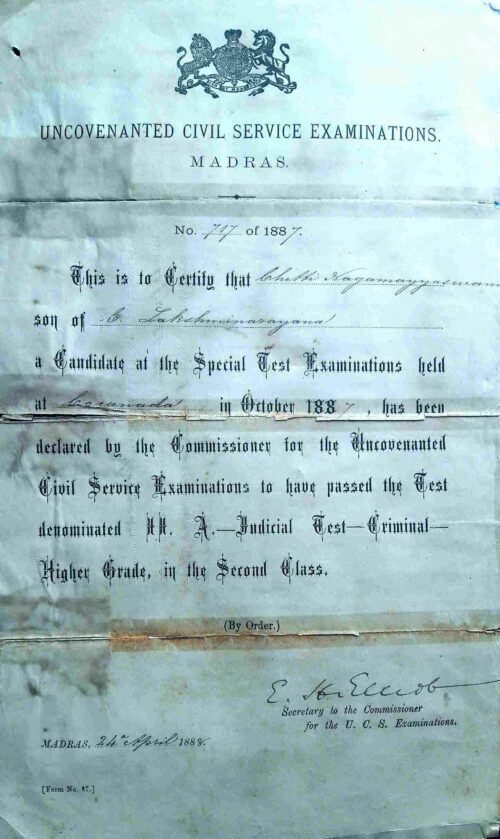 UNCOVENANTED CIVIL SERVICE EXAMINATIONS.
MADRAS.
No. 717 of 1887.
This is to Certify that Chetti Nagamayyaswam
son of C. Lakshminarayana
a Candidate at the Special Test Examinations held
at Cocanada in October 1887, has been
declared by the Commissioner for the Uncovenanted
Civil Service Examinations to have passed the Test
denominated II. A.—Judicial Test—Criminal—
Higher Grade, in the Second Class.
(By Order.)
E. H. Elliot
Secretary to the Commissioner
for the U. C. S. Examinations.
MADRAS, 24th April 1888.
[Form No. 87.]